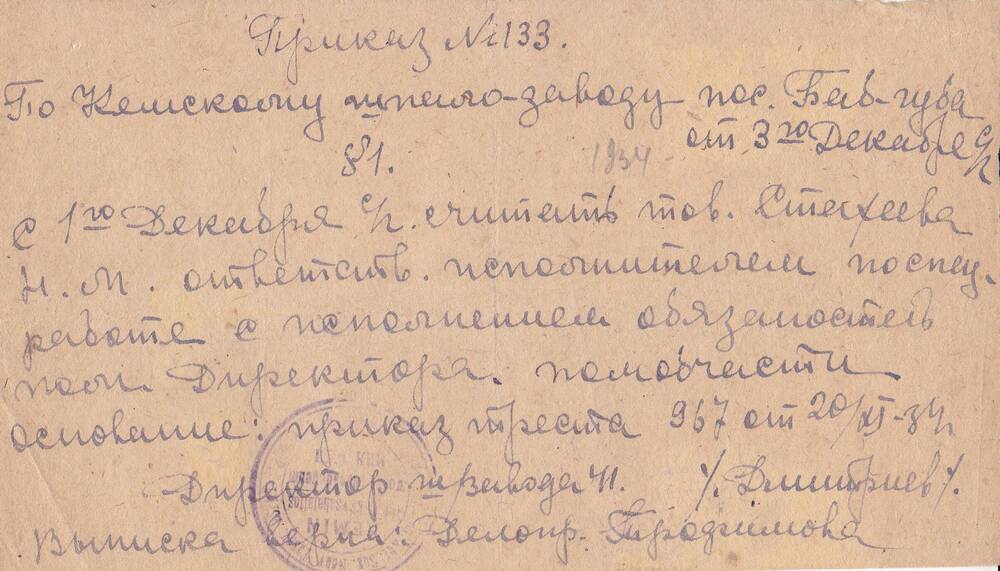 Приказ №133.
По Кемскому шпало-заводу пос. Баб-губа
от 3го Декабря с/г
§1.
1934
с 1го Декабря с/г. считать тов. Стахеева
Н. М. ответств. исполнителем по спец.
работе с исполнением обязаностей
пом. Директора. по мобчасти
основание: приказ треста 967 от 20/XI-34
Директор ш/завода 41. /. Дмитриев/.
Выписка верна: Делопр. Трофимова